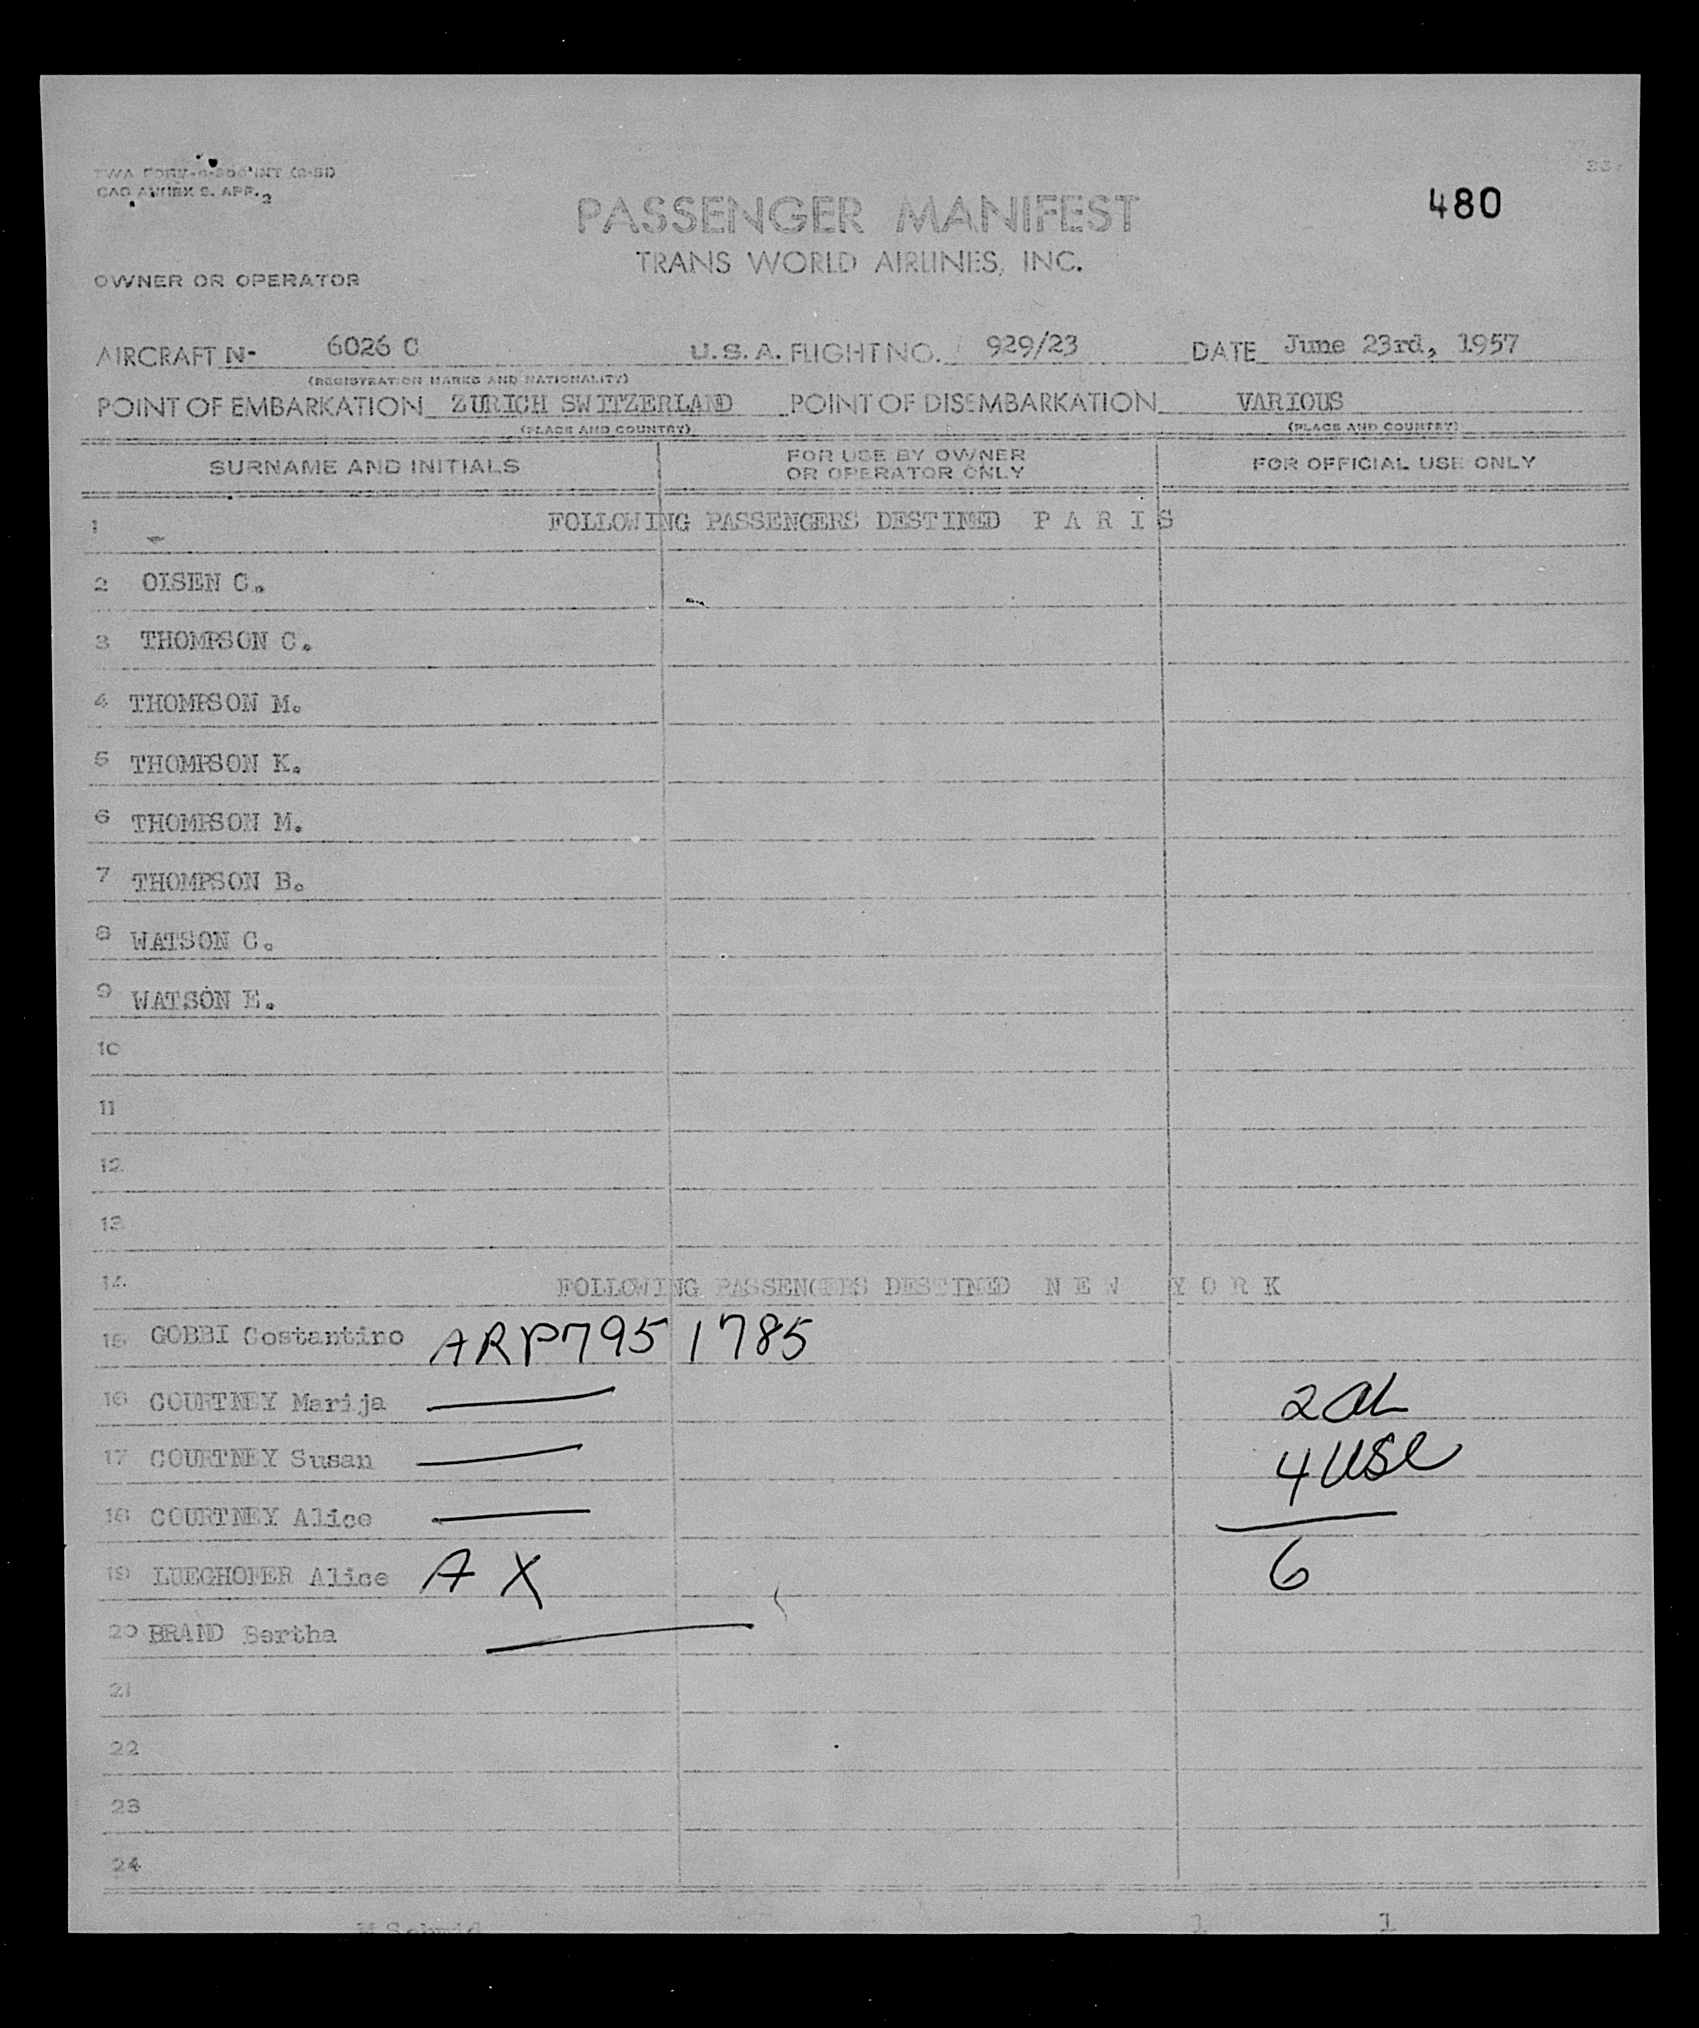 480
PASSENGER MANIFEST
TRANS WORLD AIRLINES, INC.
OWNER OR OPERATOR
AIRCRAFT N- 6026 C U.S.A. FLIGHT NO. 929/23 DATE June 23rd, 1957
(REGISTRATION MARKS AND NATIONALITY)
POINT OF EMBARKATION ZURICH SWITZERLAND POINT OF DISEMBARKATION VARIOUS
(PLACE AND COUNTRY) (PLACE AND COUNTRY)
SURNAME AND INITIALS FOR USE BY OWNER OR OPERATOR ONLY FOR OFFICIAL USE ONLY
1 FOLLOWING PASSENGERS DESTINED P A R I S
2 OISEN C.
3 THOMPSON C.
4 THOMPSON M.
5 THOMPSON K.
6 THOMPSON M.
7 THOMPSON B.
8 WATSON C.
9 WATSON E.
10
11
12
13
14 FOLLOWING PASSENGERS DESTINED N E W Y O R K
15 GOBBI Costantino ARP795 1785
16 COURTNEY Marija 2 al
17 COURTNEY Susan 4 USC
18 COURTNEY Alice
19 LUEGHOFER Alice A X 6
20 BRAND Bertha
21
22
23
24
1 1